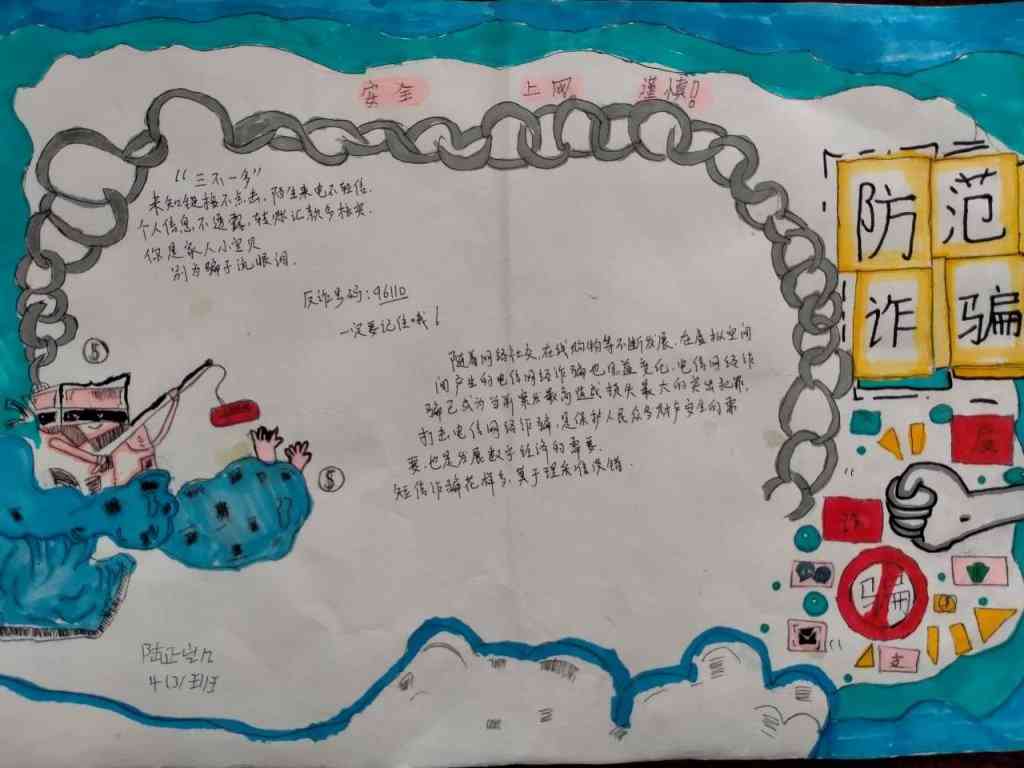 安全 上网 谨慎!
防范
诈骗
“三不一多”
未知链接不点击,陌生来电不轻信.
个人信息不透露,转账汇款多核实.
你是家人小宝贝
别为骗子流眼泪.
反诈号码:96110
一定要记住哦!
随着网络社交,在线购物等不断发展,在虚拟空间
间产生的电信网络诈骗也日益变化,电信网络诈
骗已成为当前案发最高造成损失最大的突出犯罪,
打击电信网络诈骗,是保护人民众多财产安全的需
要,也是发展数字经济的需要.
短信诈骗花样多,莫于理采准没错.
$
$
反
诈
骗
支